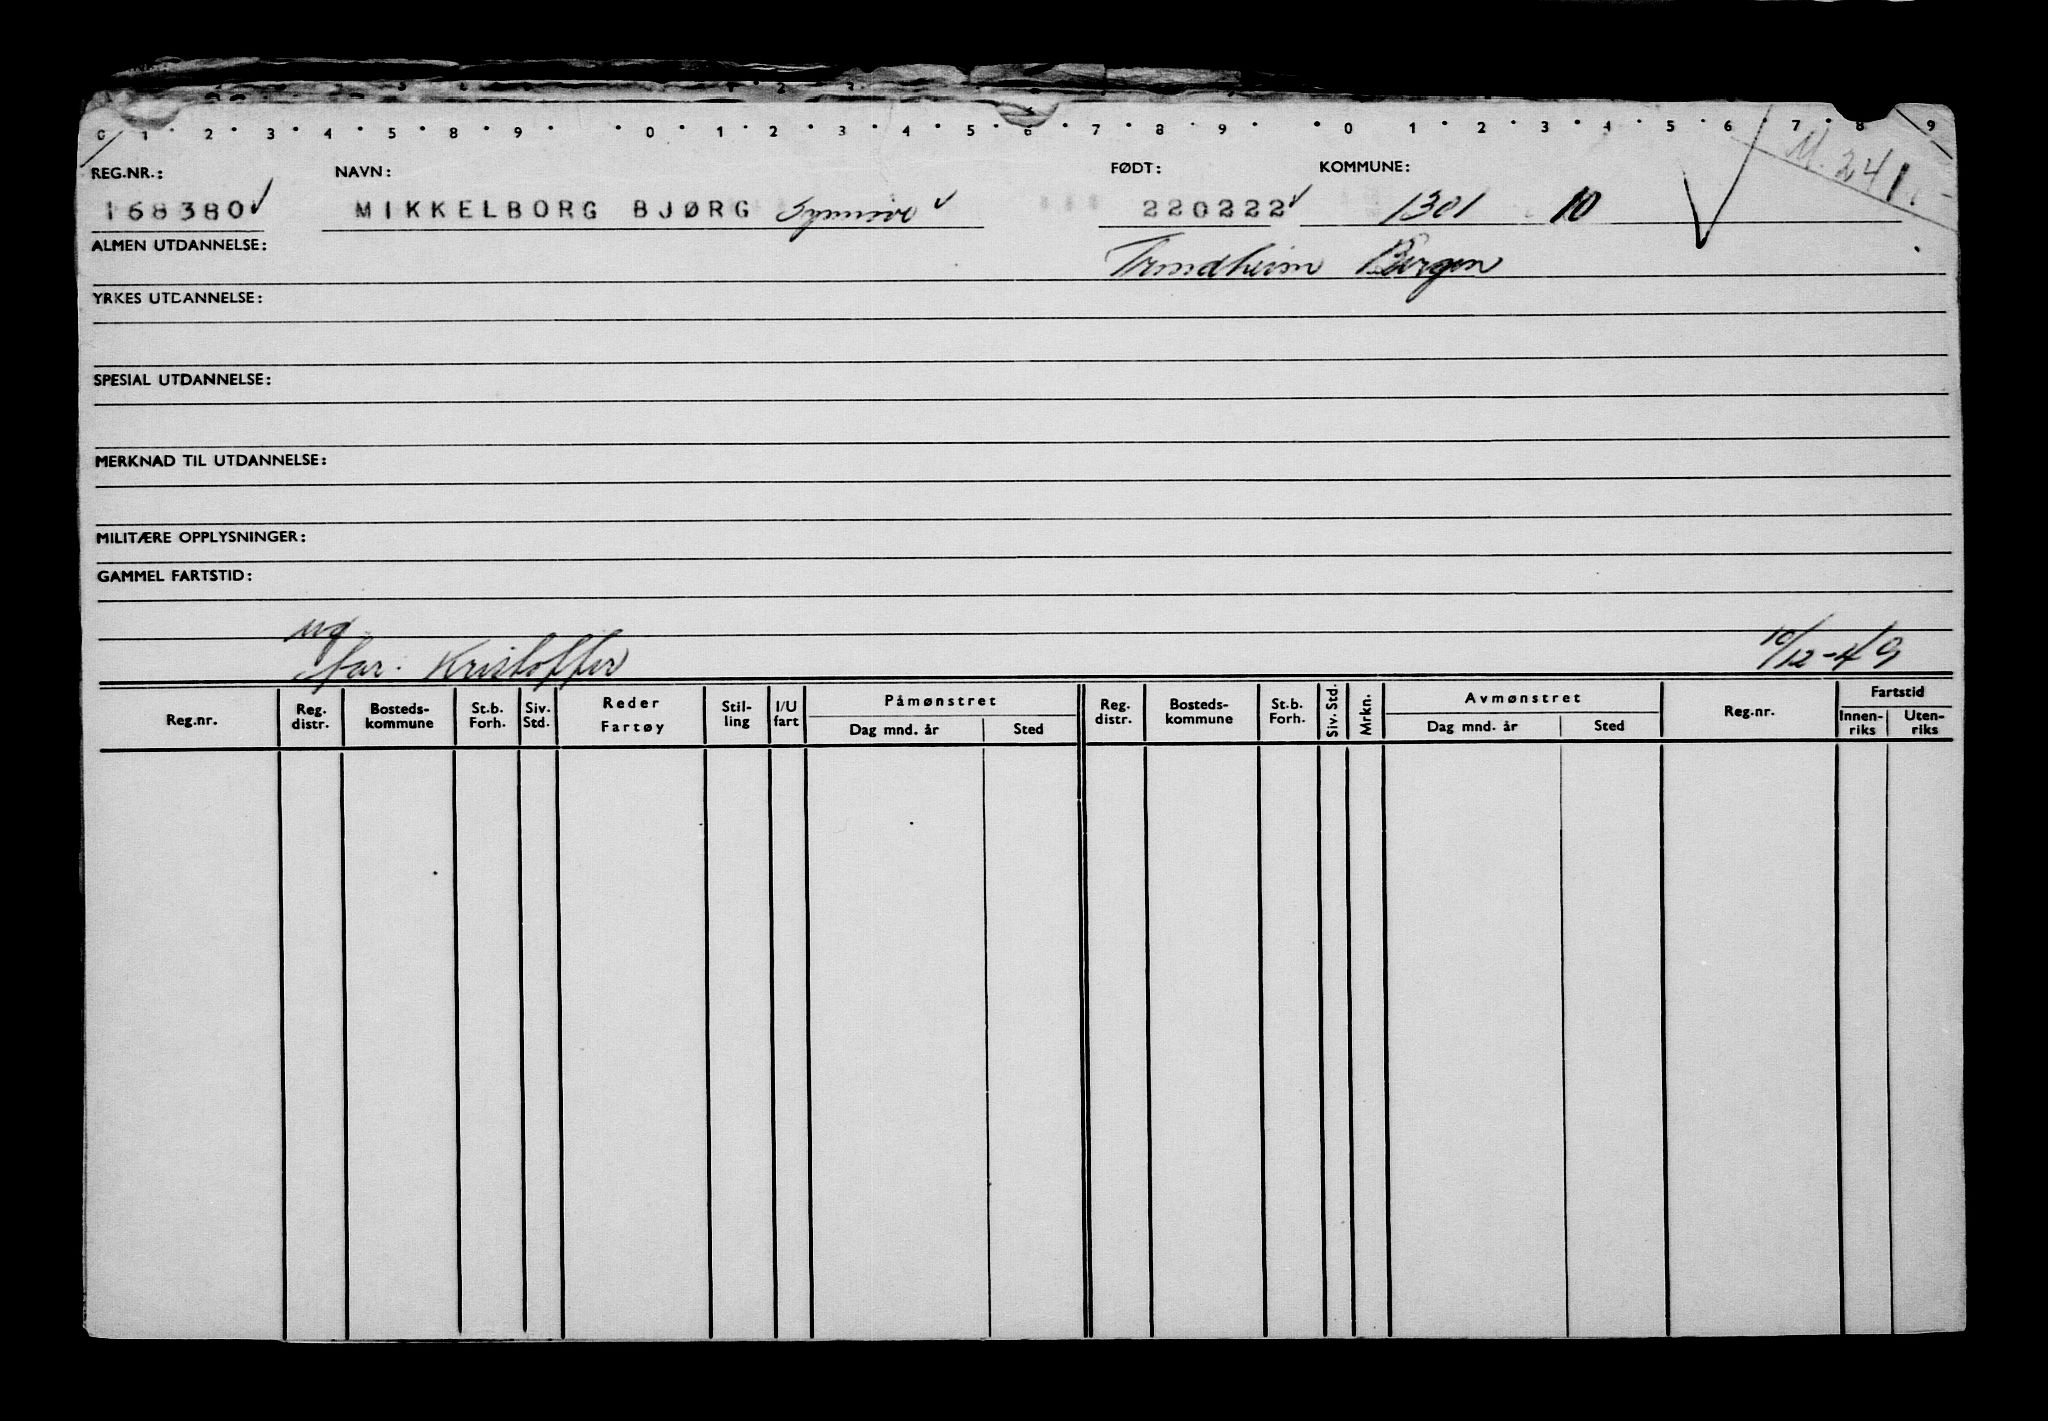 0 1 • 2 • 3 • 4 • 5 • 8 • 9 • • 0 • 1 • 2 • 3 • 4 • 5 • 6 • 7 • 8 • 9 • • 0 1 • 2 • 3 • 4 • 5 • 6 • 7 • 8 • 9
M. 241
REG.NR.: NAVN: FØDT: KOMMUNE:
168380 MIKKELBORG BJØRG Synnøve 220222 1301 10
ALMEN UTDANNELSE: Trondheim Bergen
YRKES UTDANNELSE:
SPESIAL UTDANNELSE:
MERKNAD TIL UTDANNELSE:
MILITÆRE OPPLYSNINGER:
GAMMEL FARTSTID:
ug
far. Kristoffer 10/12-49
Reg.nr. Reg. distr. Bosteds-kommune St.b. Forh. Siv. Std. Reder Fartøy Stil-ling I/U fart Påmønstret Dag mnd. år Sted Reg. distr. Bosteds-kommune St.b. Forh. Siv. Std. Mrkn. Avmønstret Dag mnd. år Sted Reg.nr. Fartstid Innen-riks Uten-riks